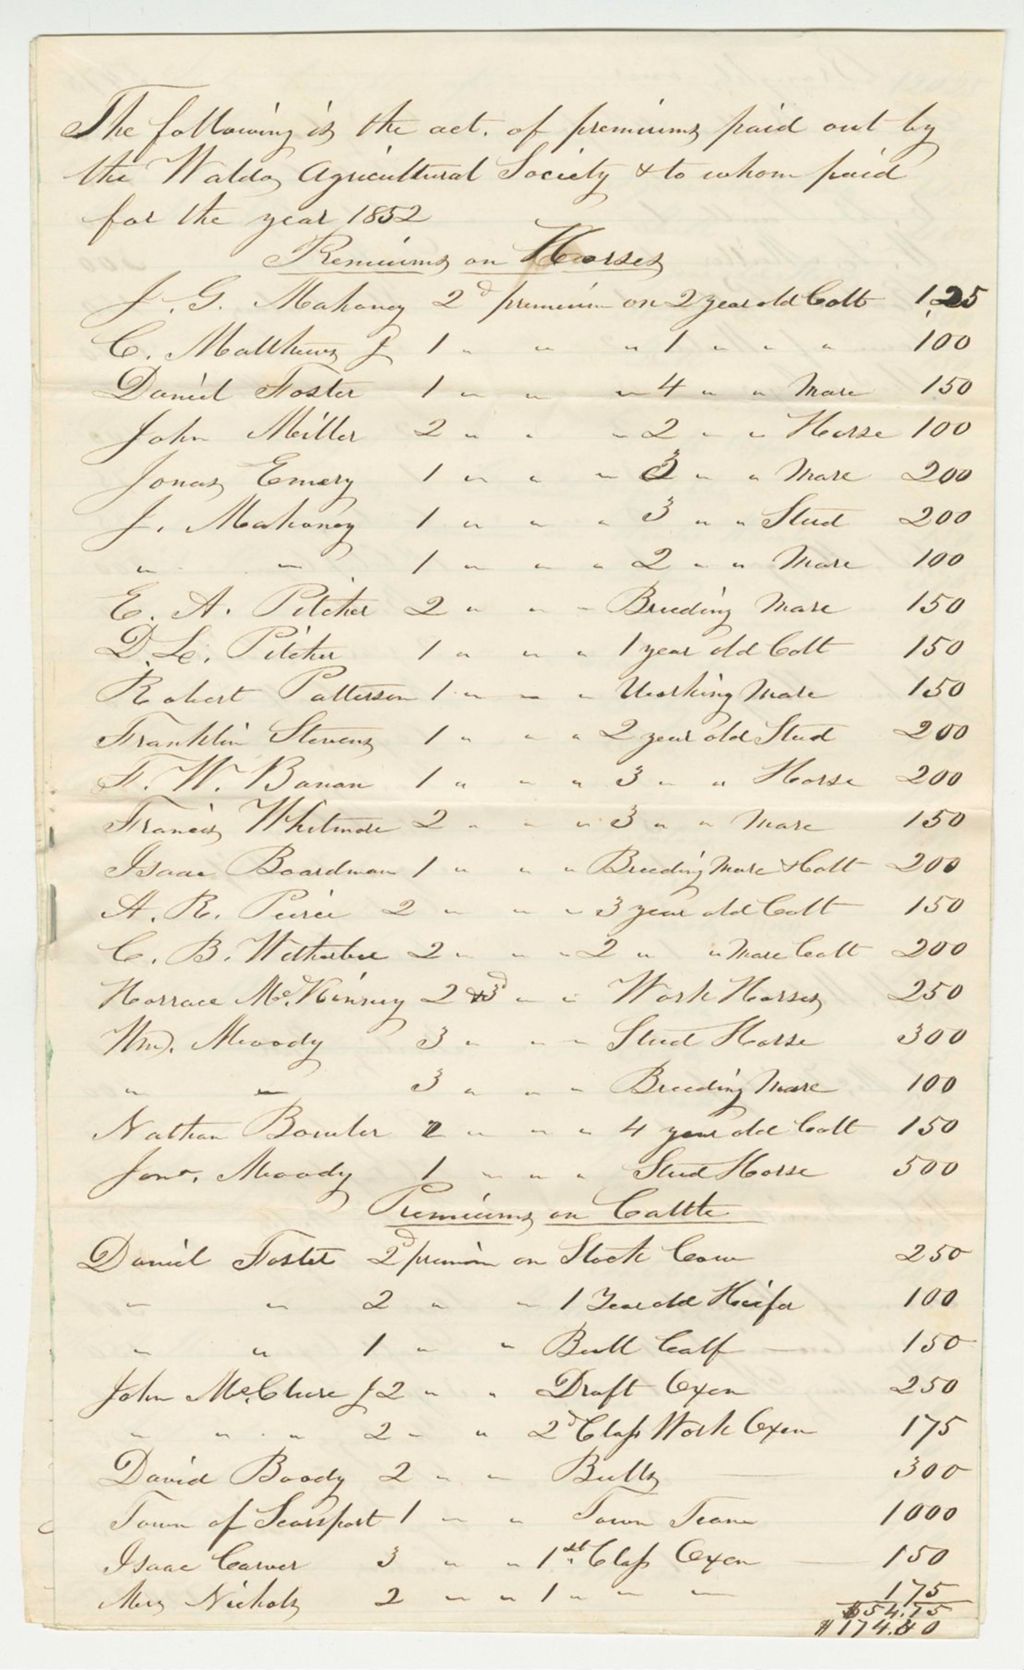 The following is the act. of premiums paid out by
the Waldo Agricultural Society & to whom paid
for the year 1852
Premiums on Horses
J. G. Mahoney 2d premium on 2 year old Colt 1,25
C. Matthews Jr 1 " " " 1 " " " 100
Daniel Foster 1 " " " 4 " " Mare 150
John Miller 2 " " " 2 " " Horse 100
Jonas Emery 1 " " " 3 " " Mare 200
J. Mahoney 1 " " " 3 " " Stud 200
" " 1 " " " 2 " " Mare 100
E. A. Pitcher 2 " " " Breeding Mare 150
D. L. Pitcher 1 " " " 1 year old Colt 150
Robert Patterson 1 " " " Working Mare 150
Franklin Stevens 1 " " " 2 year old Stud 200
F. W. 1 " " " 3 " " Horse 200
Francis Whitmore 2 " " " 3 " " Mare 150
Isaac Boardman 1 " " " Breeding Mare & Colt 200
A. R. Peirce 2 " " " 3 year old Colt 150
C. B. Wetherbee 2 " " " 2 " " Mare Colt 200
Horrace McKinney 2 & 3d " " Work Horses 250
Wm. Moody 3 " " " Stud Horse 300
" " 3 " " " Breeding Mare 100
Nathan 2 " " " 4 year old Colt 150
Jona. Moody 1 " " " Stud Horse 500
Premiums on Cattle
Daniel Foster 2d premium on Stock Cow 250
" " 2 " " 1 Year old Heifer 100
" " 1 " " Bull Calf 150
John McClure Jr 2 " " Draft Oxen 250
" " " 2 " " 2d Class Work Oxen 175
David Boody 2 " " Bulls 300
Town of Searsport 1 " " Town Team 1000
Isaac Carver 3 " " 1st Class Oxen 150
Nichols 2 " " 1 " " " 175
$54.75
$174.80